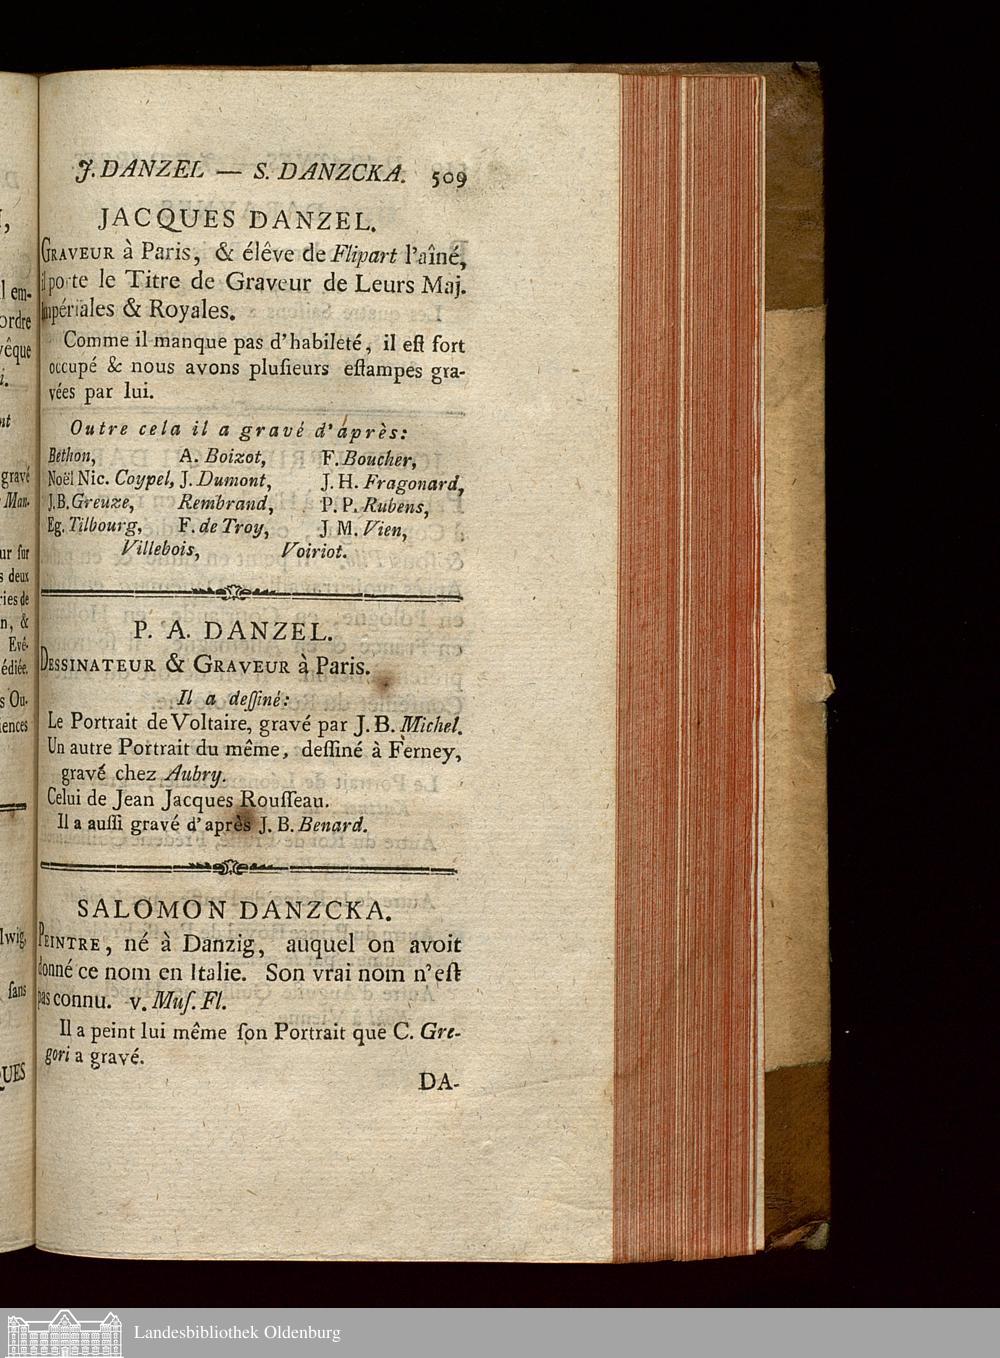 J. DANZEL — S. DANZCKA. 509
JACQUES DANZEL.
GRAVEUR à Paris, & élêve de Flipart l'aîné,
il porte le Titre de Graveur de Leurs Maj.
Impériales & Royales.
Comme il manque pas d'habileté, il eſt fort
occupé & nous avons pluſieurs eſtampes gra-
vées par lui.
Outre cela il a gravé d'après:
Bethon, A. Boizot, F. Boucher,
Noël Nic. Coypel, J. Dumont, J. H. Fragonard,
J. B. Greuze, Rembrand, P. P. Rubens,
Eg. Tilbourg, F. de Troy, J. M. Vien,
Villebois, Voiriot.
P. A. DANZEL.
DESSINATEUR & GRAVEUR à Paris.
Il a deſſiné:
Le Portrait de Voltaire, gravé par J. B. Michel.
Un autre Portrait du même, deſſiné à Ferney,
gravé chez Aubry.
Celui de Jean Jacques Rouſſeau.
Il a auſſi gravé d'après J. B. Benard.
SALOMON DANZCKA.
PEINTRE, né à Danzig, auquel on avoit
donné ce nom en Italie. Son vrai nom n'eſt
pas connu. v. Muſ. Fl.
Il a peint lui même ſon Portrait que C. Gre-
gori a gravé.
DA-
l em-
ordre
vêque
gravé
Man.
ur ſur
s deux
ries de
n, &
Evé-
édiée.
s Ou-
iences
lwig,
ſans
QUES
Landesbibliothek Oldenburg